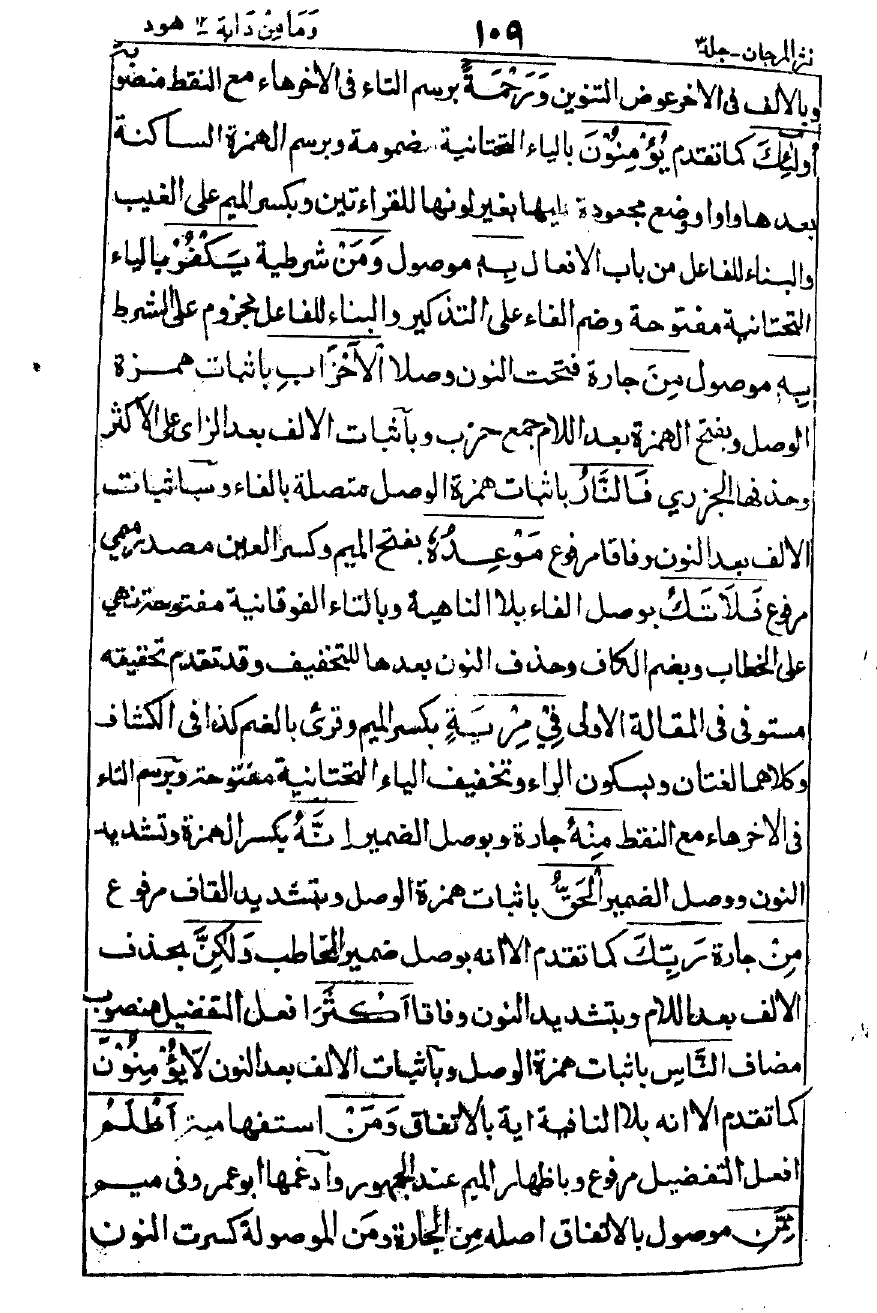 نثر المرجان - جلد ٣ ١٠٩ ومامن دابة ١٢ هود
وبالالف فى الاخر عوض التنوين وَرَحْمَةً برسم التاء فى الاخر هاء مع النقط منصوب
أُولٰٓئِكَ كما تقدم يُؤْمِنُوْنَ بالياء التحتانية مضمومة وبرسم الهمزة الساكنة
بعدها واوا ووضع مجعودة عليها بغير لونها للقراءتين وبكسر الميم على الغيب
والبناء للفاعل من باب الافعال بِهٖ موصول وَمَنْ شرطية يَكْفُرْ بالياء
التحتانية مفتوحة وضم الفاء على التذكير والبناء للفاعل مجزوم على الشرط
بِهٖ موصول مِنَ جارة فتحت النون وصلا الْاَحْزَابِ باثبات همزة
الوصل وبفتح الهمزة بعد اللام جمع حزب وباثبات الالف بعد الزاى على الاكثر
وحذفها الجزري فَالنَّارُ باثبات همزة الوصل متصلة بالفاء وباثبات
الالف بعد النون وفاقا مرفوع مَوْعِدُهٗ بفتح الميم وكسر العين مصدر ميمي
مرفوع فَلَا تَكُ بوصل الفاء بلا الناهية وبالتاء الفوقانية مفتوحة نهي
على الخطاب وبضم الكاف وحذف النون بعدها للتخفيف وقد تقدم تحقيقه
مستوفى فى المقالة الاولى فِيْ مِرْيَةٍ بكسر الميم وقرئ بالضم كذا فى الكشاف
وكلاهما لغتان وبسكون الراء وتخفيف الياء التحتانية مفتوحة وبرسم التاء
فى الاخر هاء مع النقط مِنْهُ جارة وبوصل الضمير اِنَّهُ بكسر الهمزة وتشديد
النون ووصل الضمير الْحَقُّ باثبات همزة الوصل وبتشديد القاف مرفوع
مِنْ جارة رَبِّكَ كما تقدم الا انه بوصل ضمير المخاطب وَلٰكِنَّ بحذف
الالف بعد اللام وبتشديد النون وفاقا اَكْثَرَ افعل التفضيل منصوب
مضاف النَّاسِ باثبات همزة الوصل وباثبات الالف بعد النون لَا يُؤْمِنُوْنَ
كما تقدم الا انه بلا النافية اية بالاتفاق وَمَنْ استفهامية اَظْلَمُ
افعل التفضيل مرفوع وباظهار الميم عند الجمهور وادغمها ابو عمرو فى ميم
مِمَّنِ موصول بالاتفاق اصله مِن الجارة ومَن الموصولة كسرت النون